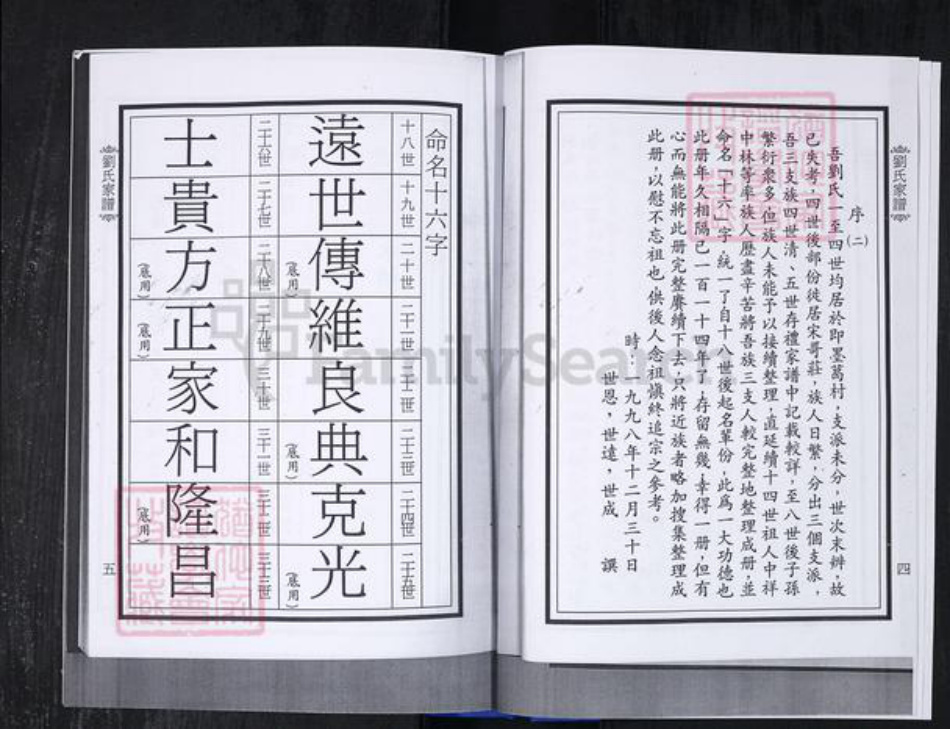 劉氏家譜
序(二)
吾劉氏一至四世均居於即墨葛村,支派未分,世次未辨,故
已失考,四世後部份徙居宋哥莊,族人日繁,分出三個支派,
吾三支族四世清、五世存禮家譜中記載較詳,至八世後子孫
繁衍衆多,但族人未能予以接續整理,直延續十四世祖人中祥
中林等率族人歷盡辛苦將吾族三支人較完整地整理成册,並
命名「十六」字,統一了自十八世後起名輩份,此爲一大功德也
此册年久相隔已一百一十四年了,存留無幾,幸得一册,但有
心而無能將此册完整賡續下去,只將近族者略加搜集整理成
此册,以慰不忘祖也,供後人念祖愼終追宗之參考。
時:一九九八年十二月三十日
世恩,世遠,世成 譔
四
命名十六字
十八世 十九世 二十世 二十一世 二十二世 二十三世 二十四世 二十五世
遠世傳(底用)維良典(底用)克光(底用)
二十六世 二十七世 二十八世 二十九世 三十世 三十一世 三十二世 三十三世
士貴方(底用)正(底用)家和隆(底用)昌
劉氏家譜
五
FamilySearch